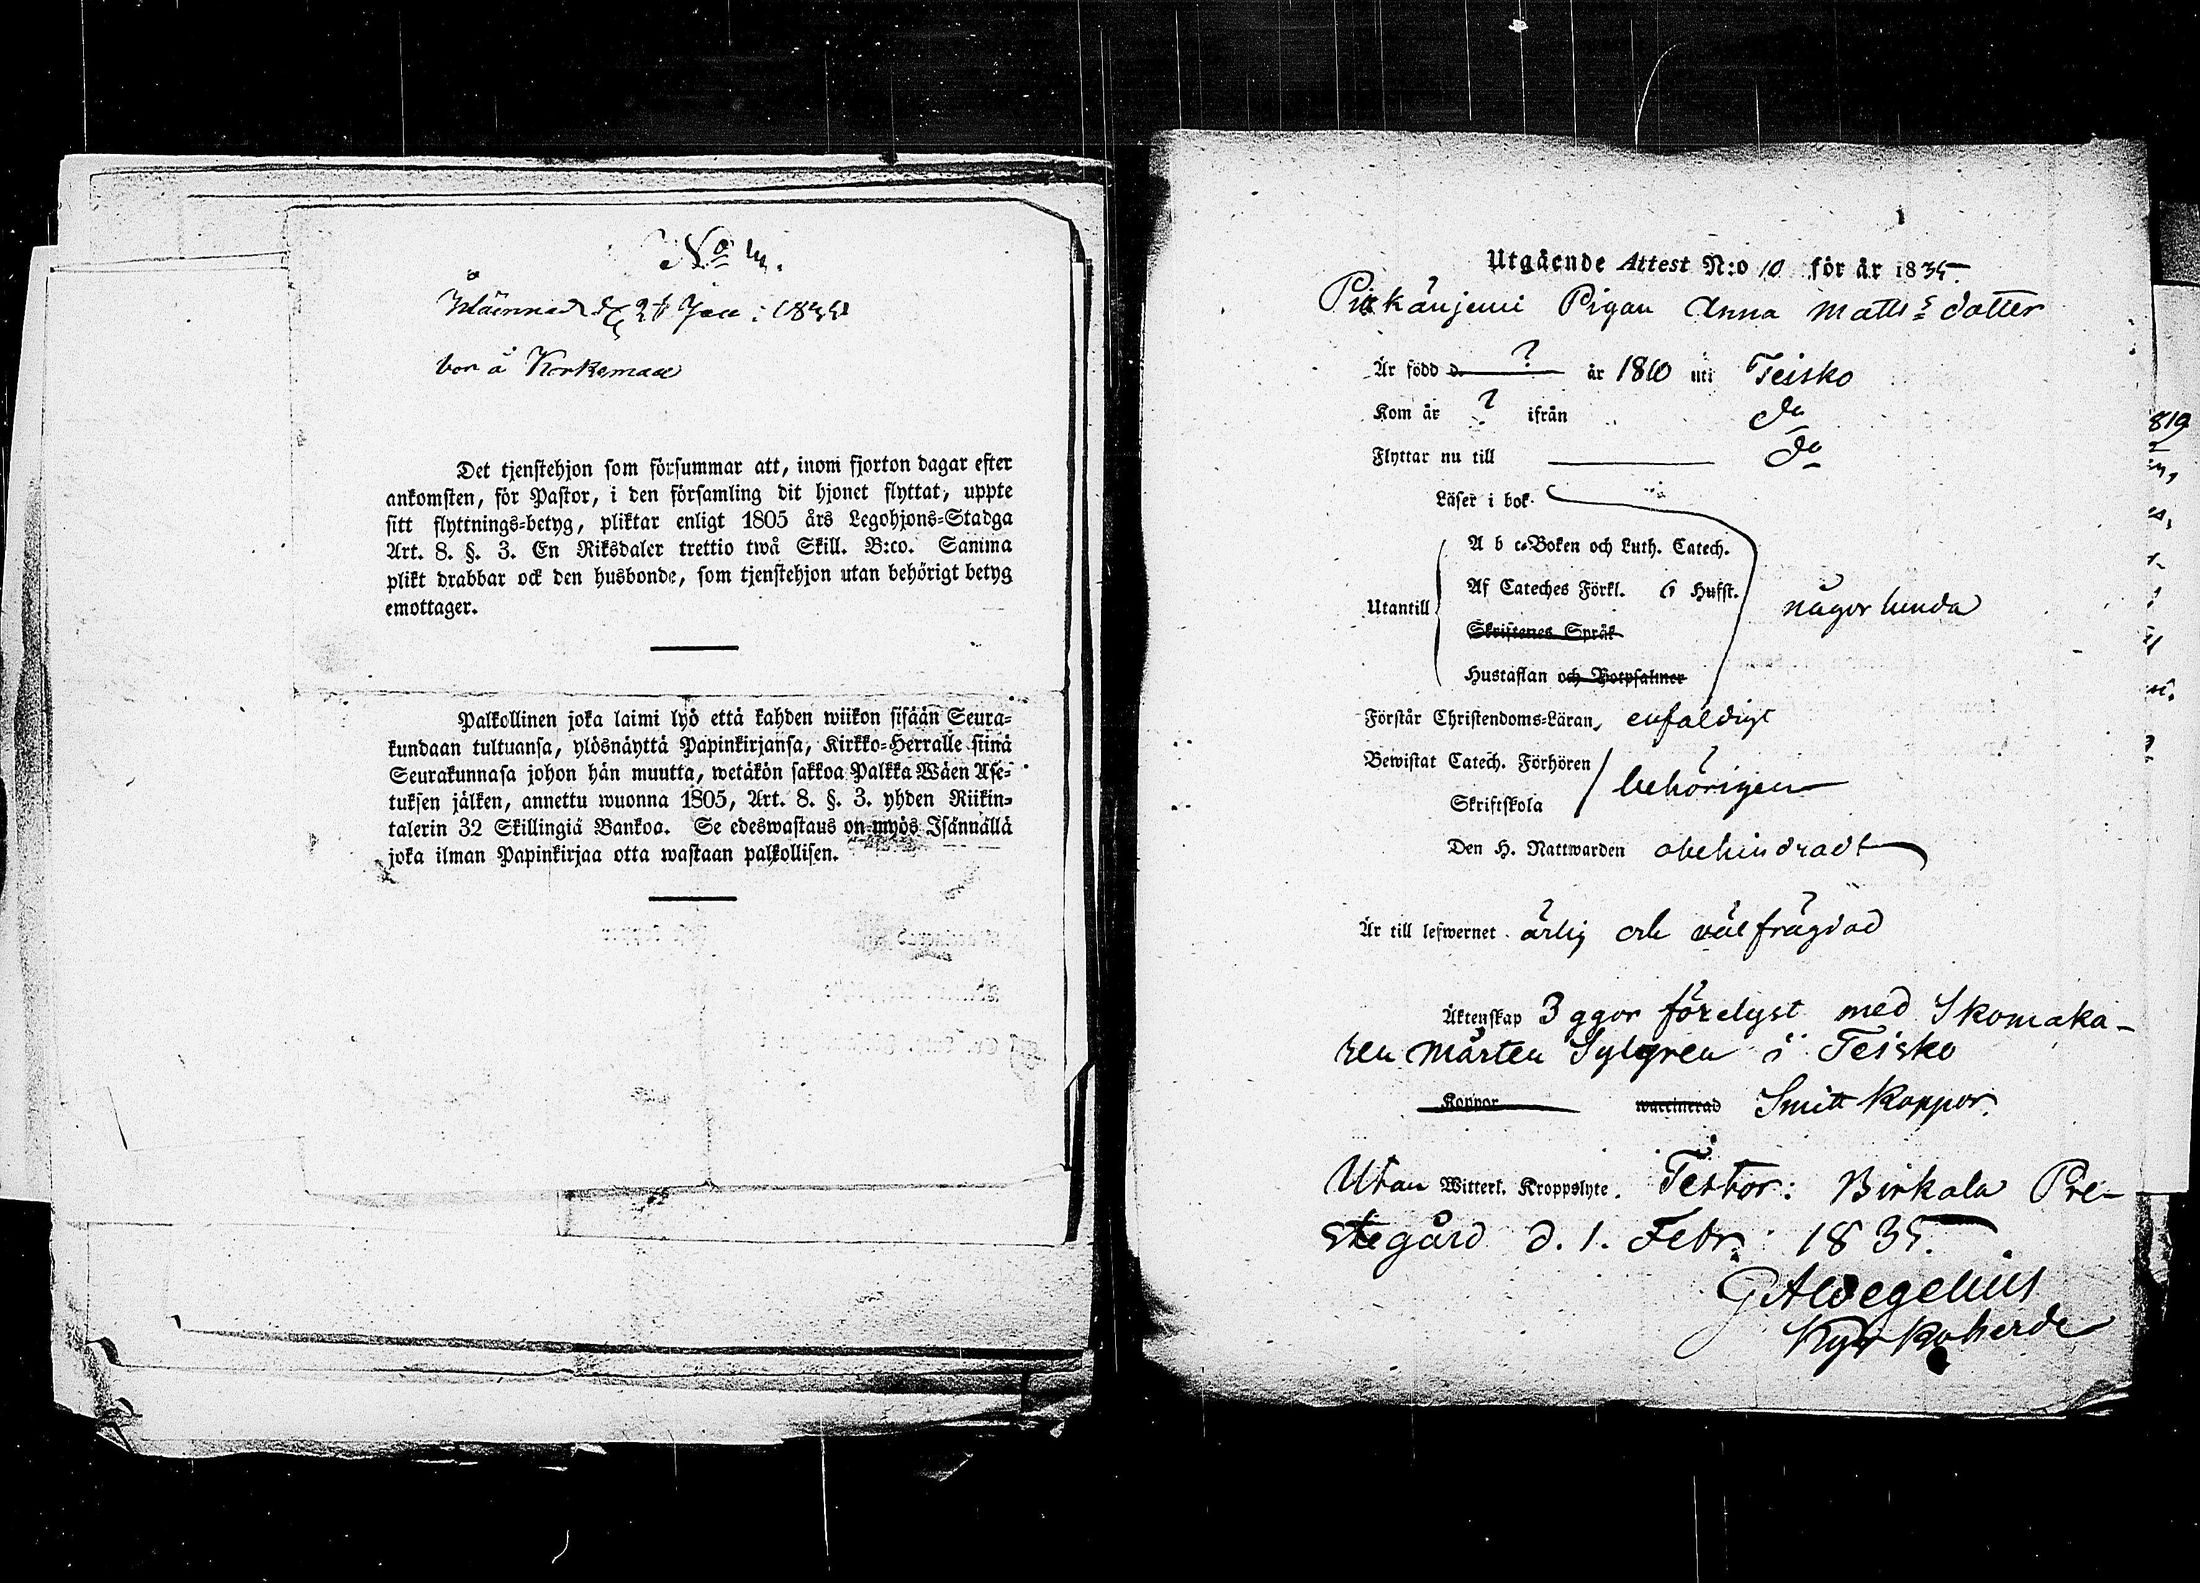 No 4.
d. 21 Jan: 1835
bor å Korkemaa
Det tjenstehjon som försummar att, inom fjorton dagar efter
ankomsten, för Pastor, i den församling dit hjonet flyttat, uppte
sitt flyttnings-betyg, pliktar enligt 1805 års Legohjons-Stadga
Art. 8. §. 3. En Riksdaler trettio twå Skill. B:co. Samma
plikt drabbar ock den husbonde, som tjenstehjon utan behörigt betyg
emottager.
Palkollinen joka laimi lyö että kahden wiikon sisään Seura-
kundaan tultuansa, ylösnäyttä Papinkirjansa, Kirkko-Herralle siinä
Seurakunnasa johon hän muutta, wetäkön sakkoa Palkka Wäen Ase-
tuksen jälken, annettu wuonna 1805, Art. 8. §. 3. yhden Riikin-
talerin 32 Skillingiä Bankoa. Se edeswastaus on myös Isännällä
joka ilman Papinkirjaa otta wastaan palkollisen.
Utgående Attest N:o 10 för år 1835.
Pirkänjemi Pigan Anna Matts dotter
Är född d. ? år 1810 uti Teisko
Kom år ? ifrån do
Flyttar nu till do
Läser i bok
A b c-Boken och Luth. Catech.
Af Cateches Förkl. 6 Hufst.
Utantill någorlunda
Skriftenes Språk
Hustaflan och Botpsalmer
Förstår Christendoms-Läran, enfaldigt
Bewistat Catech. Förhören
behörigen
Skriftskola
Den H. Nattwarden obehindradt
Är till lefwernet ärlig och välfrägdad
Äktenskap 3 ggor förelyst med Skomaka-
ren Mårten Sylgren i Teisko
Koppor waccinerad Smittkoppor.
Utan Witterl. Kroppslyte. Testor: Birkala Pre-
stegård d. 1. Febr: 1835.
G A Wegelius
Kyrkoherde